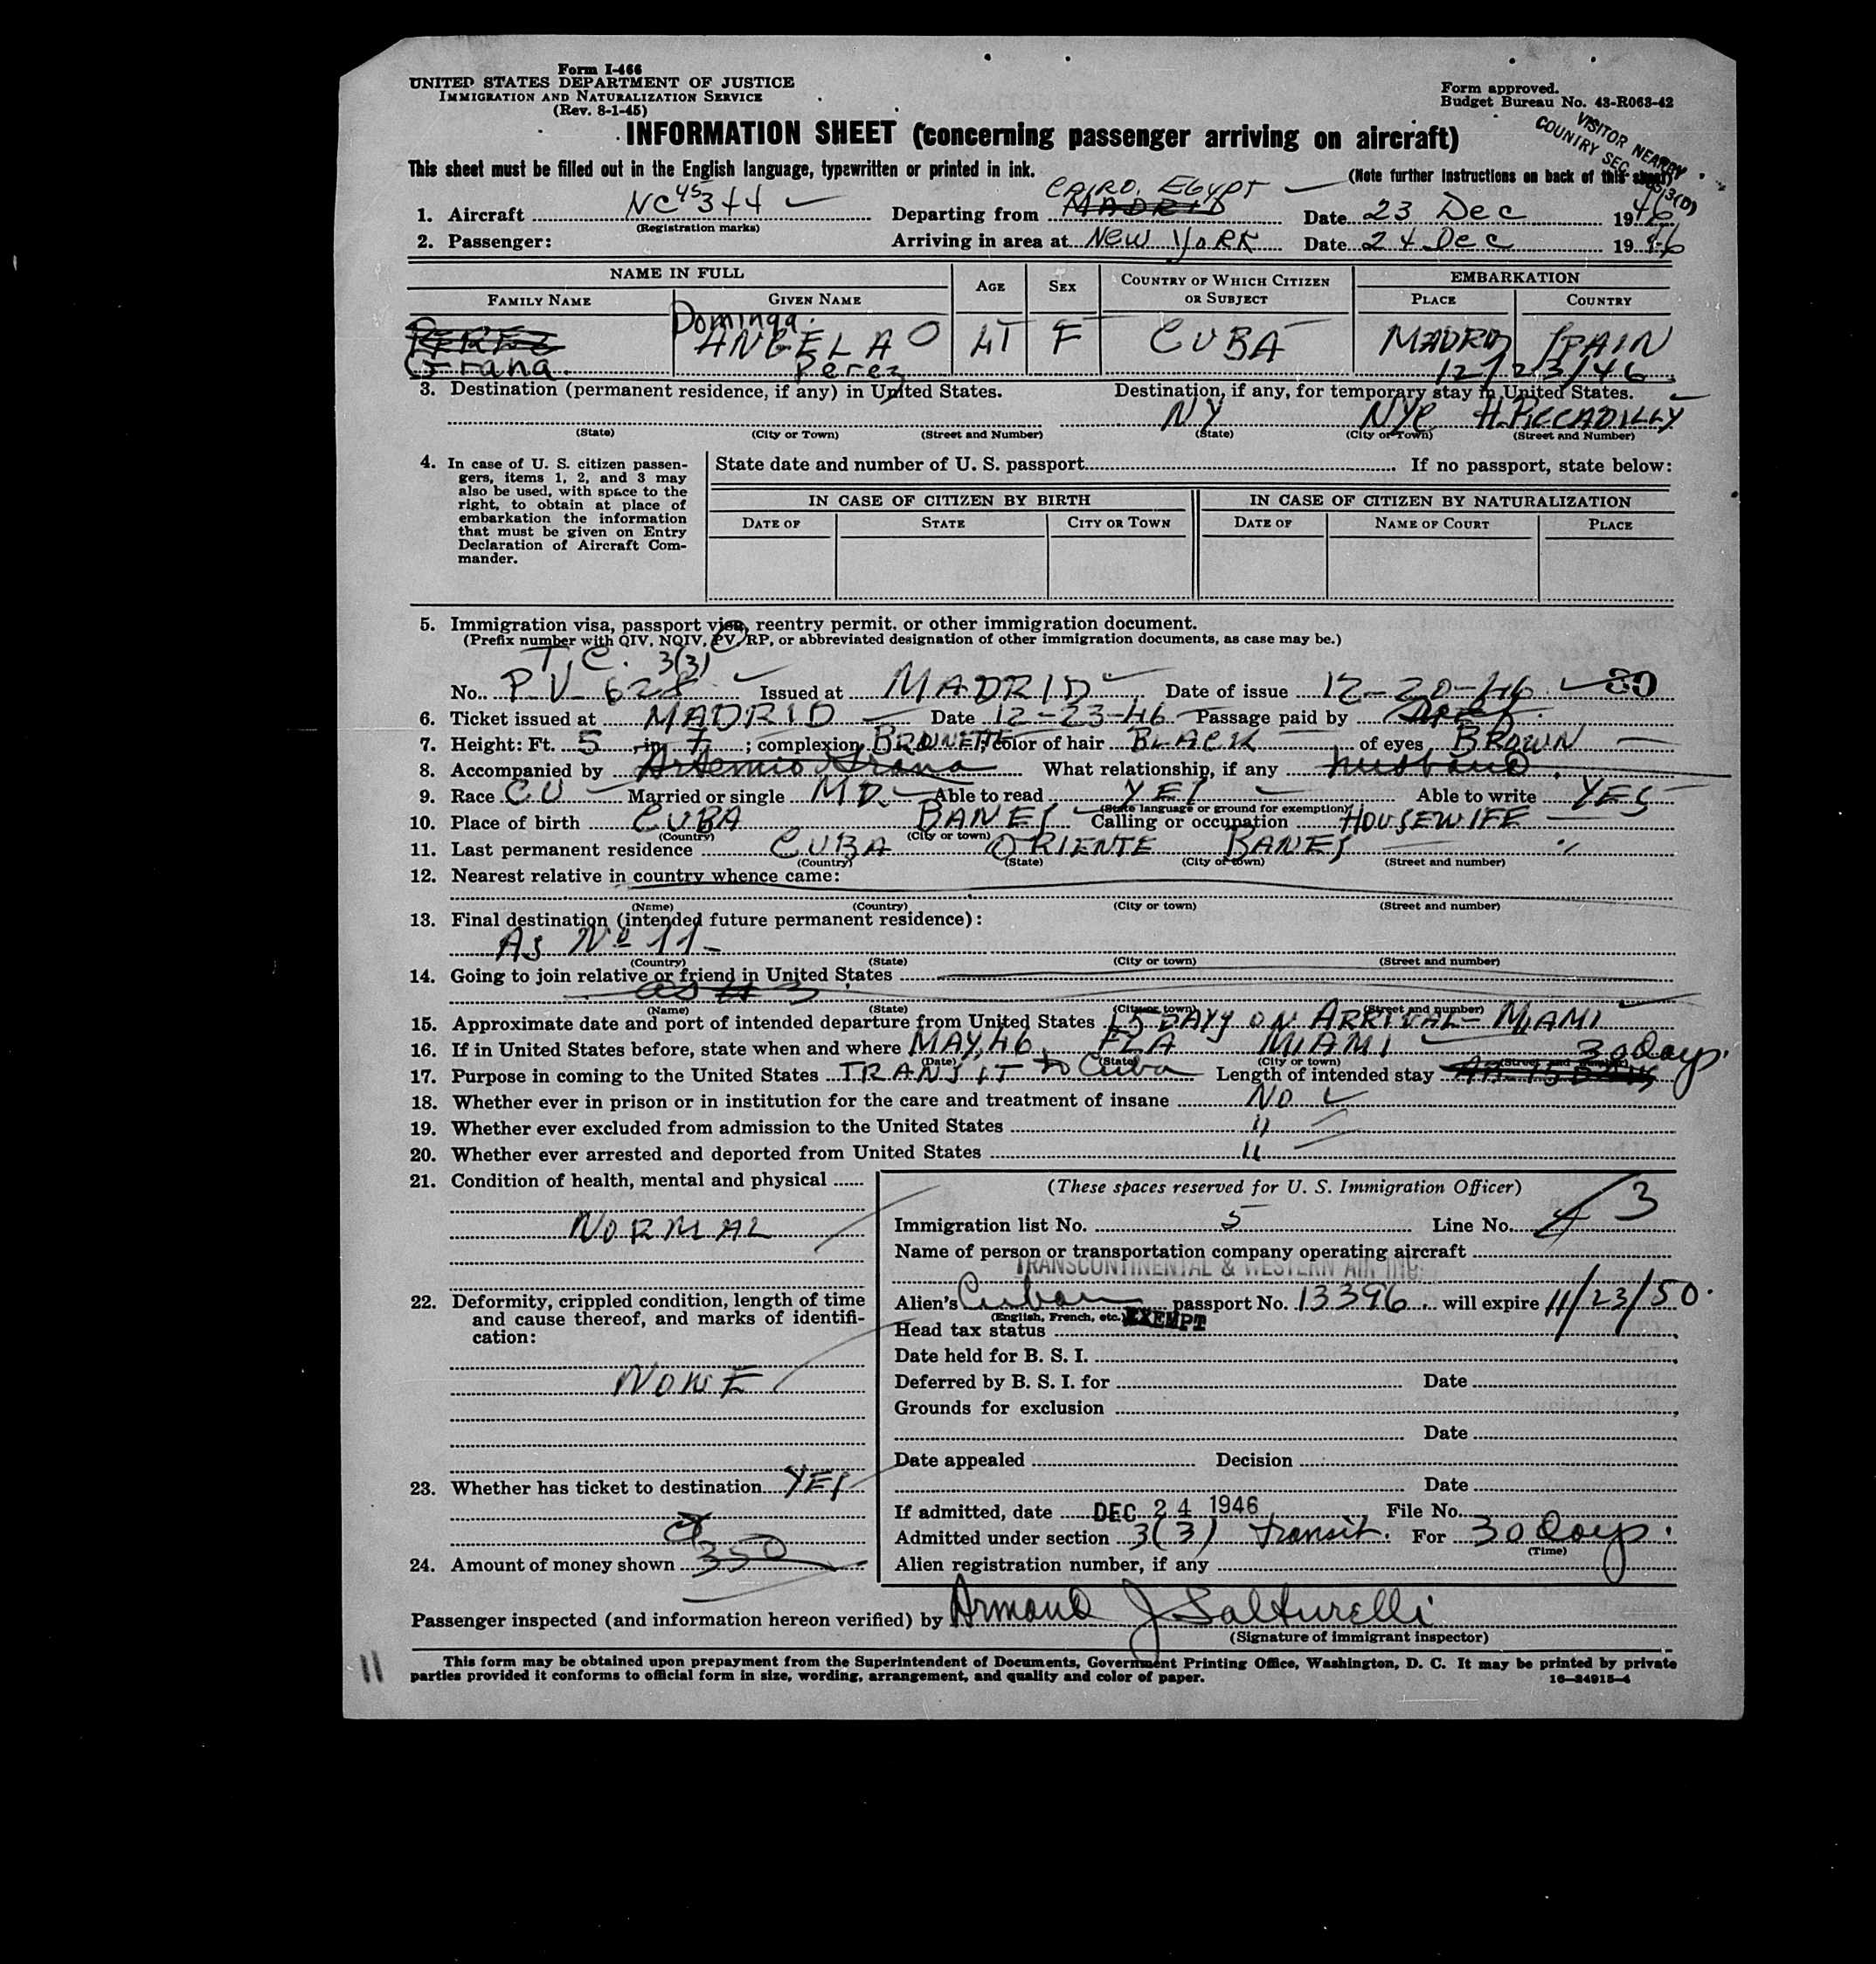 Form I-466
UNITED STATES DEPARTMENT OF JUSTICE
IMMIGRATION AND NATURALIZATION SERVICE
(Rev. 8-1-45)
Form approved.
Budget Bureau No. 43-R063-42
VISITOR NEARBY
COUNTRY SEC.
INFORMATION SHEET (concerning passenger arriving on aircraft)
This sheet must be filled out in the English language, typewritten or printed in ink.
(Note further instructions on back of this sheet)
CAIRO, EGYPT
1. Aircraft NC Departing from MADRID Date 23 Dec 1946
(Registration marks)
2. Passenger: Arriving in area at NEW YORK Date 24 Dec 1946
NAME IN FULL AGE SEX COUNTRY OF WHICH CITIZEN OR SUBJECT EMBARKATION
FAMILY NAME GIVEN NAME PLACE COUNTRY
Dominga
PEREZ ANGELA F CUBA MADRID SPAIN
Grana Perez 12/23/46
3. Destination (permanent residence, if any) in United States. Destination, if any, for temporary stay in United States.
NY NYC H. PICCADILLY
(State) (City or Town) (Street and Number) (State) (City or Town) (Street and Number)
4. In case of U. S. citizen passengers, items 1, 2, and 3 may also be used, with space to the right, to obtain at place of embarkation the information that must be given on Entry Declaration of Aircraft Commander.
State date and number of U. S. passport If no passport, state below:
IN CASE OF CITIZEN BY BIRTH IN CASE OF CITIZEN BY NATURALIZATION
DATE OF STATE CITY OR TOWN DATE OF NAME OF COURT PLACE
5. Immigration visa, passport visa, reentry permit. or other immigration document.
(Prefix number with QIV, NQIV, PV, RP, or abbreviated designation of other immigration documents, as case may be.)
T.C. 3(3)
No. PV 628 Issued at MADRID Date of issue 12-20-46 30
6. Ticket issued at MADRID Date 12-23-46 Passage paid by
7. Height: Ft. 5 in 7 ; complexion BRUNETTE color of hair BLACK of eyes BROWN
8. Accompanied by Artemio Grana What relationship, if any husband
9. Race CU Married or single MD. Able to read YES Able to write YES
(State language or ground for exemption)
10. Place of birth CUBA BANES Calling or occupation HOUSEWIFE
(Country) (City or town)
11. Last permanent residence CUBA ORIENTE BANES
(Country) (State) (City or town) (Street and number)
12. Nearest relative in country whence came:
(Name) (Country) (City or town) (Street and number)
13. Final destination (intended future permanent residence):
As Nº 11-
(Country) (State) (City or town) (Street and number)
14. Going to join relative or friend in United States
as # 3
(Name) (State) (City or town) (Street and number)
15. Approximate date and port of intended departure from United States 15 DAYS ON ARRIVAL - MIAMI
16. If in United States before, state when and where MAY, 46 FLA MIAMI
(Date) (State) (City or town) (Street and number)
30 Days.
17. Purpose in coming to the United States TRANSIT to Cuba Length of intended stay
18. Whether ever in prison or in institution for the care and treatment of insane NO
19. Whether ever excluded from admission to the United States "
20. Whether ever arrested and deported from United States "
21. Condition of health, mental and physical
NORMAL
22. Deformity, crippled condition, length of time and cause thereof, and marks of identification:
NONE
23. Whether has ticket to destination YES
24. Amount of money shown 350
(These spaces reserved for U. S. Immigration Officer)
Immigration list No. 5 Line No. 4 3
Name of person or transportation company operating aircraft
TRANSCONTINENTAL & WESTERN AIR INC.
Alien's Cuban passport No. 13396 will expire 11/23/50.
(English, French, etc.)
Head tax status EXEMPT
Date held for B. S. I.
Deferred by B. S. I. for Date
Grounds for exclusion
Date
Date appealed Decision
Date
If admitted, date DEC 24 1946 File No.
Admitted under section 3(3) transit. For 30 Days.
(Time)
Alien registration number, if any
Passenger inspected (and information hereon verified) by Armand J Salturelli
(Signature of immigrant inspector)
This form may be obtained upon prepayment from the Superintendent of Documents, Government Printing Office, Washington, D. C. It may be printed by private
parties provided it conforms to official form in size, wording, arrangement, and quality and color of paper.
16-24915-4
11